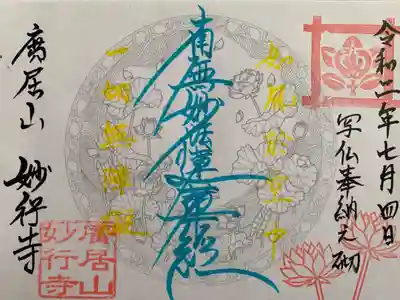 令和二年七月四日
写仏奉納之砌
如風於空中
南無妙法蓮華経
一切無障
廣居山 妙行寺
廣居山
妙行寺